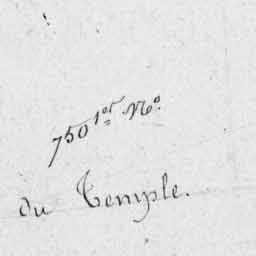 750 1er No.
du Temple.